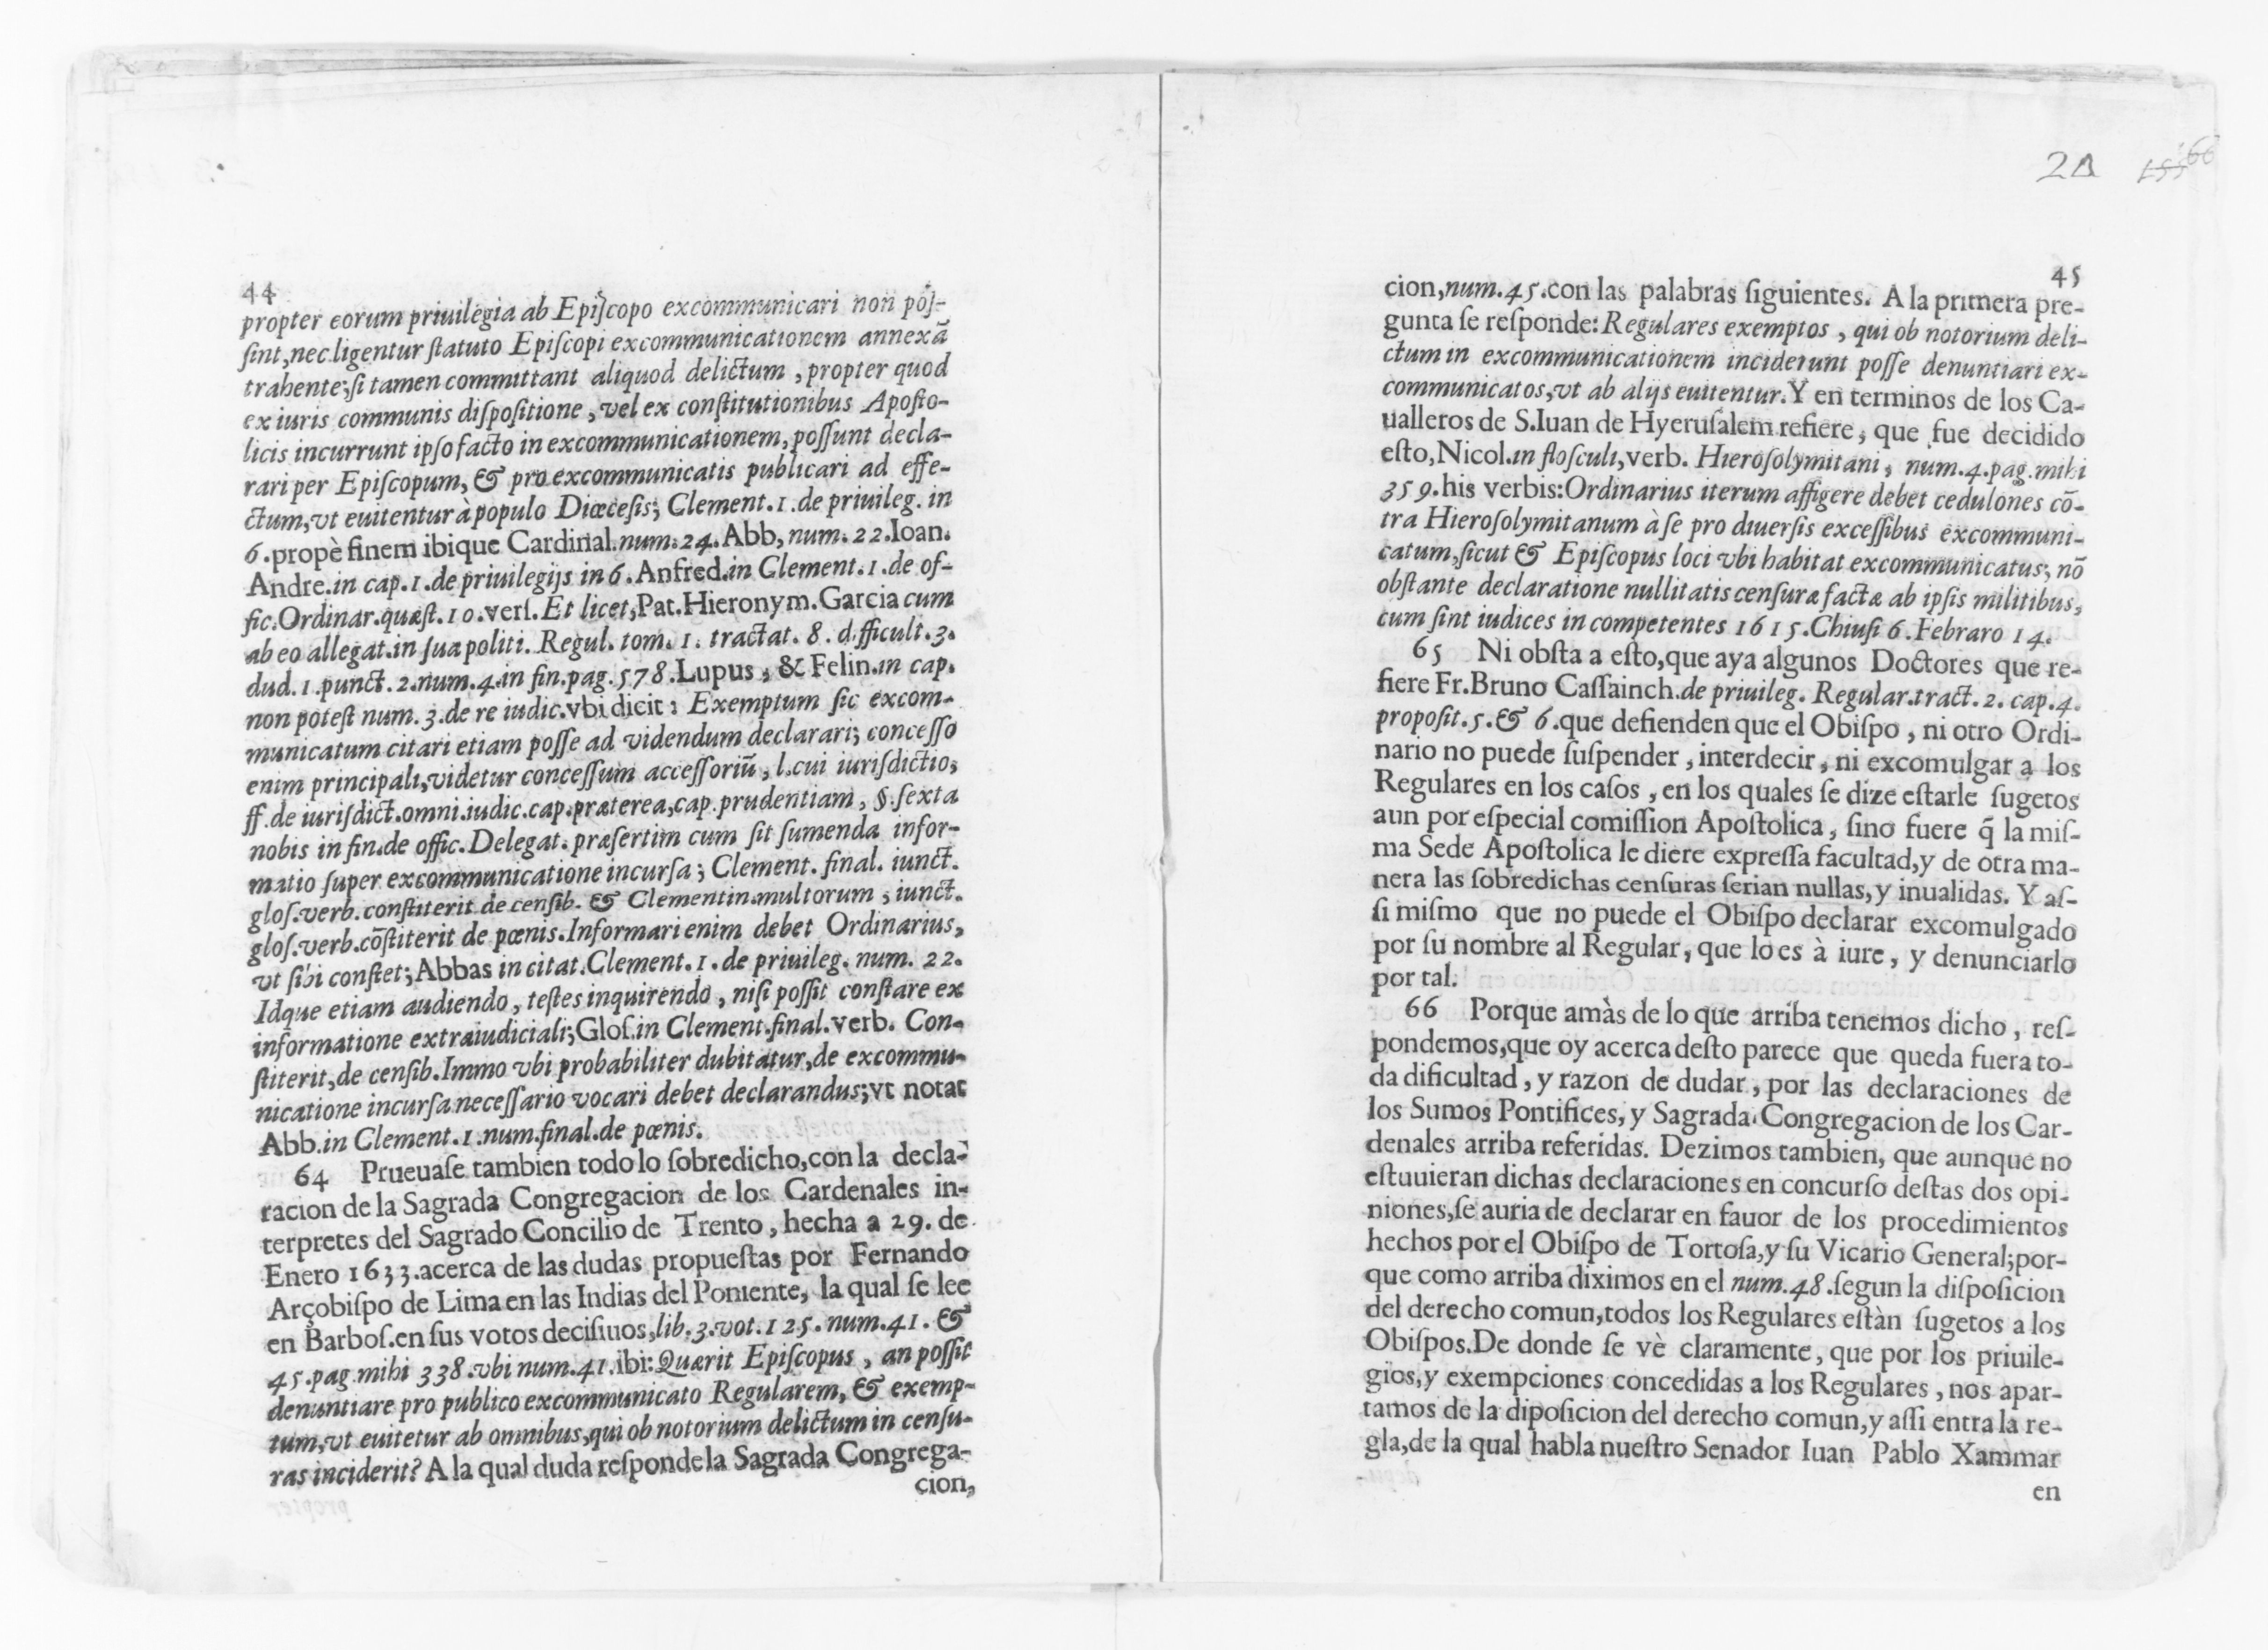 44
propter eorum priuilegia ab Epiſcopo excommunicari non poſ-
ſint, nec ligentur ſtatuto Epiſcopi excommunicationem annexã
trahente; ſi tamen committant aliquod delictum, propter quod
ex iuris communis diſpoſitione, vel ex conſtitutionibus Apoſto-
licis incurrunt ipſo facto in excommunicationem, poſſunt decla-
rari per Epiſcopum, & pro excommunicatis publicari ad effe-
ctum, vt euitentur à populo Diœceſis; Clement. 1. de priuileg. in
6. propè finem ibique Cardinal. num. 24. Abb, num. 22. Ioan.
Andre. in cap. 1. de priuilegijs in 6. Anfred. in Clement. 1. de of-
fic. Ordinar. quæſt. 10. verſ. Et licet, Pat. Hieronym. Garcia cum
ab eo allegat. in ſua politi. Regul. tom. 1. tractat. 8. difficult. 3.
dud. 1. punct. 2. num. 4. in fin. pag. 578. Lupus, & Felin. in cap.
non poteſt num. 3. de re iudic. vbi dicit: Exemptum ſic excom-
municatum citari etiam poſſe ad videndum declarari; conceſſo
enim principali, videtur conceſſum acceſſoriũ, l. cui iuriſdictio,
ff. de iuriſdict. omni. iudic. cap. præterea, cap. prudentiam, §. ſexta
nobis in fin. de offic. Delegat. præſertim cum ſit ſumenda infor-
matio ſuper excommunicatione incurſa; Clement. final. iunct.
gloſ. verb. conſtiterit de cenſib. & Clementin. multorum, iunct.
gloſ. verb. cõſtiterit de pœnis. Informari enim debet Ordinarius,
vt ſibi conſtet; Abbas in citat. Clement. 1. de priuileg. num. 22.
Idque etiam audiendo, teſtes inquirendo, niſi poſſit conſtare ex
informatione extraiudiciali; Gloſ. in Clement. final. verb. Con-
ſtiterit, de cenſib. Immo vbi probabiliter dubitatur, de excommu-
nicatione incurſa neceſſario vocari debet declarandus; vt notat
Abb. in Clement. 1. num. final. de pœnis.
64 Prueuaſe tambien todo lo ſobredicho, con la decla-
racion de la Sagrada Congregacion de los Cardenales in-
terpretes del Sagrado Concilio de Trento, hecha a 29. de
Enero 1633. acerca de las dudas propueſtas por Fernando
Arçobiſpo de Lima en las Indias del Poniente, la qual ſe lee
en Barboſ. en ſus votos deciſiuos, lib. 3. vot. 125. num. 41. &
45. pag. mihi 338. vbi num. 41. ibi: Quærit Epiſcopus, an poſſit
denuntiare pro publico excommunicato Regularem, & exemp-
tum, vt euitetur ab omnibus, qui ob notorium delictum in cenſu-
ras inciderit? A la qual duda reſponde la Sagrada Congrega-
cion,
45
cion, num. 45. con las palabras ſiguientes. A la primera pre-
gunta ſe reſponde: Regulares exemptos, qui ob notorium deli-
ctum in excommunicationem inciderunt poſſe denuntiari ex-
communicatos, vt ab alijs euitentur. Y en terminos de los Ca-
ualleros de S. Iuan de Hyeruſalem refiere, que fue decidido
eſto, Nicol. in floſculi, verb. Hieroſolymitani, num. 4. pag. mihi
359. his verbis: Ordinarius iterum affigere debet cedulones cõ-
tra Hieroſolymitanum à ſe pro diuerſis exceſſibus excommuni-
catum, ſicut & Epiſcopus loci vbi habitat excommunicatus; nõ
obſtante declaratione nullitatis cenſuræ factæ ab ipſis militibus,
cum ſint iudices in competentes 1615. Chiuſi 6. Febraro 14.
65 Ni obſta a eſto, que aya algunos Doctores que re-
fiere Fr. Bruno Caſſainch. de priuileg. Regular. tract. 2. cap. 4.
propoſit. 5. & 6. que defienden que el Obiſpo, ni otro Ordi-
nario no puede ſuſpender, interdecir, ni excomulgar a los
Regulares en los caſos, en los quales ſe dize eſtarle ſugetos
aun por eſpecial comiſſion Apoſtolica, ſino fuere q̃ la miſ-
ma Sede Apoſtolica le diere expreſſa facultad, y de otra ma-
nera las ſobredichas cenſuras ſerian nullas, y inualidas. Y aſ-
ſi miſmo que no puede el Obiſpo declarar excomulgado
por ſu nombre al Regular, que lo es à iure, y denunciarlo
por tal.
66 Porque amàs de lo que arriba tenemos dicho, reſ-
pondemos, que oy acerca deſto parece que queda fuera to-
da dificultad, y razon de dudar, por las declaraciones de
los Sumos Pontifices, y Sagrada Congregacion de los Car-
denales arriba referidas. Dezimos tambien, que aunque no
eſtuuieran dichas declaraciones en concurſo deſtas dos opi-
niones, ſe auria de declarar en fauor de los procedimientos
hechos por el Obiſpo de Tortoſa, y ſu Vicario General; por-
que como arriba diximos en el num. 48. ſegun la diſpoſicion
del derecho comun, todos los Regulares eſtàn ſugetos a los
Obiſpos. De donde ſe vè claramente, que por los priuile-
gios, y exempciones concedidas a los Regulares, nos apar-
tamos de la dipoſicion del derecho comun, y aſſi entra la re-
gla, de la qual habla nueſtro Senador Iuan Pablo Xammar
en